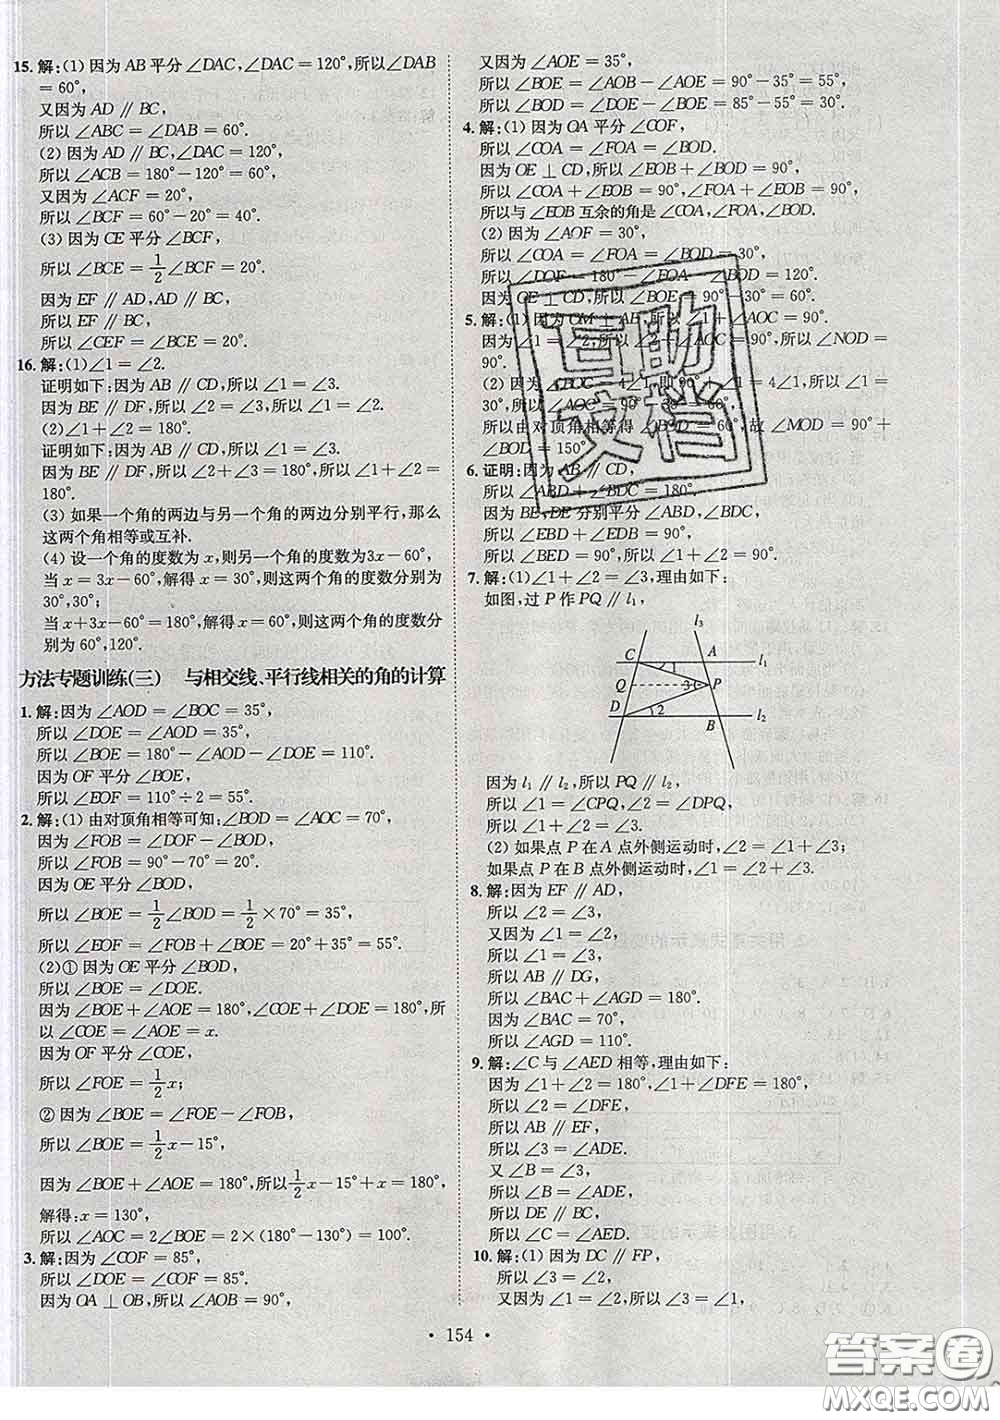 15. 解:(1) 因为 AB 平分 ∠DAC,∠DAC=120°,所以∠DAB
=60°,
又因为 AD∥BC,
所以 ∠ABC=∠DAB=60°.
(2) 因为 AD∥BC,∠DAC=120°,
所以 ∠ACB=180°-120°=60°.
又因为 ∠ACF=20°,
所以 ∠BCF=60°-20°=40°.
(3) 因为 CE 平分 ∠BCF,
所以 ∠BCE=1/2∠BCF=20°.
因为 EF∥AD,AD∥BC,
所以 EF∥BC,
所以 ∠CEF=∠BCE=20°.
16. 解:(1)∠1=∠2.
证明如下:因为 AB∥CD,所以∠1=∠3.
因为 BE∥DF,所以∠2=∠3,所以∠1=∠2.
(2)∠1+∠2=180°.
证明如下:因为 AB∥CD,所以∠1=∠3.
因为 BE∥DF,所以∠2+∠3=180°,所以∠1+∠2=
180°.
(3) 如果一个角的两边与另一个角的两边分别平行,那么
这两个角相等或互补.
(4) 设一个角的度数为 x,则另一个角的度数为3x-60°,
当 x=3x-60°,解得 x=30°,则这两个角的度数分别为
30°,30°;
当 x+3x-60°=180°,解得 x=60°,则这两个角的度数分
别为 60°,120°.
方法专题训练(三) 与相交线、平行线相关的角的计算
1. 解:因为 ∠AOD=∠BOC=35°,
所以 ∠DOE=∠AOD=35°.
所以 ∠BOE=180°-∠AOD-∠DOE=110°.
因为 OF 平分 ∠BOE,
所以 ∠EOF=110°÷2=55°.
2. 解:(1) 由对顶角相等可知:∠BOD=∠AOC=70°,
因为 ∠FOB=∠DOF-∠BOD,
所以 ∠FOB=90°-70°=20°.
因为 OE 平分 ∠BOD,
所以 ∠BOE=1/2∠BOD=1/2×70°=35°,
所以 ∠EOF=∠FOB+∠BOE=20°+35°=55°.
(2)① 因为 OE 平分 ∠BOD,
所以 ∠BOE=∠DOE.
因为 ∠BOE+∠AOE=180°,∠COE+∠DOE=180°,所
以 ∠COE=∠AOE=x.
因为 OF 平分 ∠COE,
所以 ∠FOE=1/2x;
② 因为 ∠BOE=∠FOE-∠FOB,
所以 ∠BOE=1/2x-15°,
因为 ∠BOE+∠AOE=180°,所以1/2x-15°+x=180°,
解得:x=130°,
所以 ∠AOC=2∠BOE=2×(180°-130°)=100°.
3. 解:因为 ∠COF=85°,
所以 ∠DOE=∠COF=85°.
因为 OA⊥OB,所以 ∠AOB=90°,
又因为 ∠AOE=35°,
所以 ∠BOE=∠AOB-∠AOE=90°-35°=55°,
所以 ∠BOD=∠DOE-∠BOE=85°-55°=30°.
4. 解:(1) 因为 OA 平分 ∠COF,
所以 ∠COA=∠FOA=∠BOD.
因为 OE⊥CD,所以 ∠EOB+∠BOD=90°,
所以 ∠COA+∠EOB=90°,∠FOA+∠EOB=90°.
所以与 ∠EOB 互余的角是 ∠COA,∠FOA,∠BOD.
(2) 因为 ∠AOF=30°,
所以 ∠COA=∠FOA=∠BOD=30°,
所以 ∠DOF=180°-∠FOA-∠BOD=120°.
因为 OE⊥CD,所以 ∠BOE=90°-30°=60°.
5. 解:(1) 因为 OM⊥AB,所以 ∠1+∠AOC=90°.
因为 ∠1=∠2,所以 ∠2+∠AOC=90°,所以∠NOD=
90°.
(2) 因为 ∠BOC=4∠1,即 90°+∠1=4∠1,所以∠1=
30°,所以 ∠AOC=90°-30°=60°,
所以由对顶角相等得 ∠BOD=60°,故 ∠MOD=90°+
∠BOD=150°.
6. 证明:因为 AB∥CD,
所以 ∠ABD+∠BDC=180°.
因为 BE,DE 分别平分 ∠ABD,∠BDC,
所以 ∠EBD+∠EDB=90°,
所以 ∠BED=90°.
7. 解:(1)∠1+∠2=∠3,理由如下:
如图,过 P 作 PQ∥l₁,
l₃
C A 1 l₁
Q 3 P
D 2 B l₂
因为 l₁∥l₂,所以 PQ∥l₂,
所以 ∠1=∠CPQ,∠2=∠DPQ,
所以 ∠1+∠2=∠3.
(2) 如果点 P 在 A 点外侧运动时,∠2=∠1+∠3;
如果点 P 在 B 点外侧运动时,∠1=∠2+∠3.
8. 解:因为 EF∥AD,
所以 ∠2=∠3,
又因为 ∠1=∠2,
所以 ∠1=∠3,
所以 AB∥DG,
所以 ∠BAC+∠AGD=180°.
因为 ∠BAC=70°,
所以 ∠AGD=110°.
9. 解:∠C 与 ∠AED 相等,理由如下:
因为 ∠1+∠2=180°,∠1+∠DFE=180°,
所以 ∠2=∠DFE,
所以 AB∥EF,
所以 ∠3=∠ADE.
又 ∠B=∠3,
所以 ∠B=∠ADE,
所以 DE∥BC,
所以 ∠C=∠AED.
10. 解:(1) 因为 DC∥FP,
所以 ∠3=∠2,
又因为∠1=∠2,所以 ∠3=∠1,
· 154 ·
互助
文档
答案圈
MXQE.COM